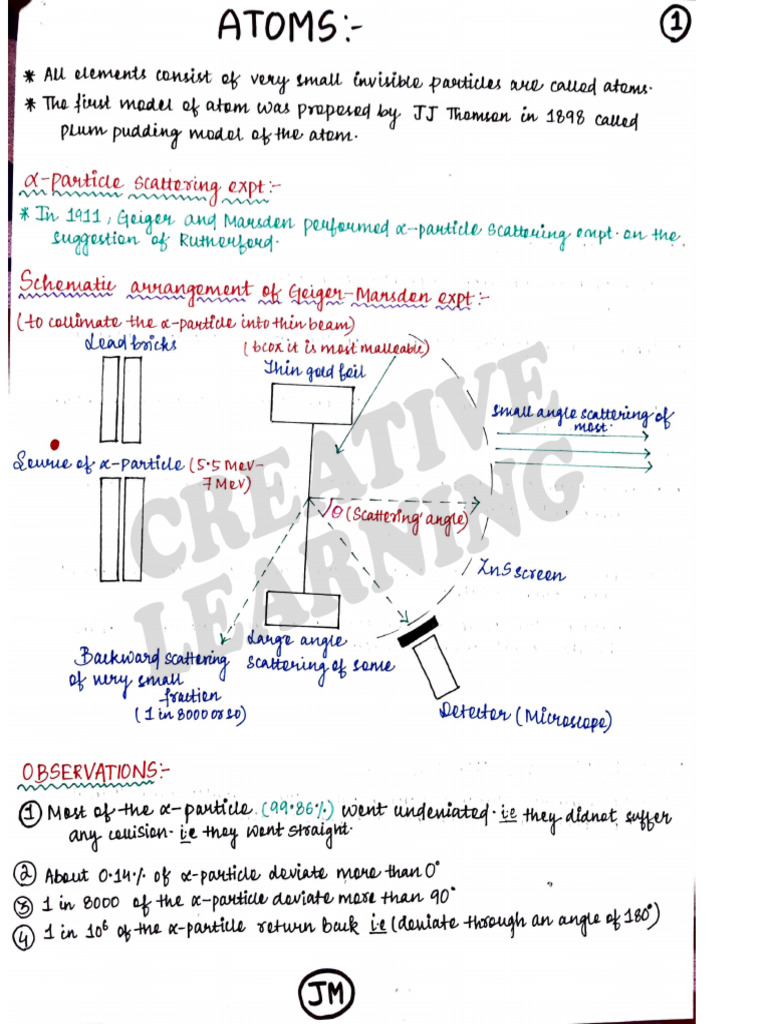 ATOMS:-
1
* All elements consist of very small invisible particles are called atoms.
* The first model of atom was proposed by JJ Thomson in 1898 called
plum pudding model of the atom.
α-particle scattering expt:-
* In 1911, Geiger and Marsden performed α-particle scattering expt. on the
suggestion of Rutherford.
Schematic arrangement of Geiger-Marsden expt:-
(to collimate the α-particle into thin beam)
Lead bricks
(bcoz it is most malleable)
Thin gold foil
small angle scattering of
most.
Source of α-particle (5.5 MeV-
7 MeV)
θ (scattering angle)
ZnS screen
CREATIVE
LEARNING
Large angle
scattering of some
Backward scattering
of very small
fraction
(1 in 8000 or so)
Detector (Microscope)
OBSERVATIONS:-
1 Most of the α-particle (99.86%) went undeviated. i.e they didnot suffer
any collision. i.e they went straight.
2 About 0.14% of α-particle deviate more than 0°
3 1 in 8000 of the α-particle deviate more than 90°
4 1 in 10⁶ of the α-particle return back i.e (deviate through an angle of 180°)
JM